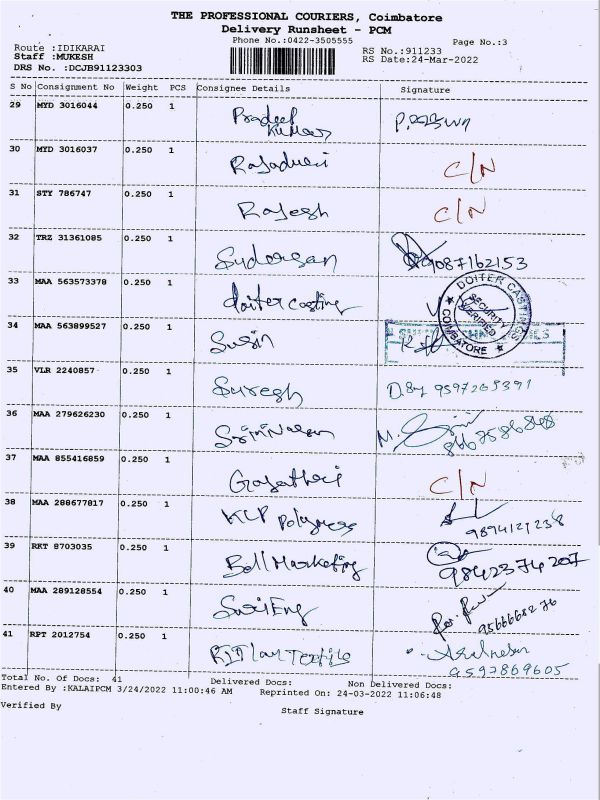 THE PROFESSIONAL COURIERS, Coimbatore
Delivery Runsheet - PCM
Phone No.:0422-3505555
Page No.:3
Route :IDIKARAI
RS No.:911233
Staff :MUKESH
RS Date:24-Mar-2022
DRS No. :DCJB91123303
S No Consignment No Weight PCS Consignee Details Signature
29 MYD 3016044 0.250 1 Pradeep Kumar
30 MYD 3016037 0.250 1 C/N
31 STY 786747 0.250 1 Rajesh C/N
32 TRZ 31361085 0.250 1 Sudorsan 9087162153
33 MAA 563573378 0.250 1 doiter casting
DOITER CASTINGS
SECURITY VERIFIED
COIMBATORE
34 MAA 563899527 0.250 1 Susin
35 VLR 2240857 0.250 1 Suresh 9597265391
36 MAA 279626230 0.250 1 M.
37 MAA 855416859 0.250 1 Gayathri C/N
38 MAA 288677817 0.250 1 KCP Polymers 9894121238
39 RKT 8703035 0.250 1 Bell Marketing 9842374207
40 MAA 289128554 0.250 1 Suri Eng
41 RPT 2012754 0.250 1 9597869605
Total No. Of Docs: 41 Delivered Docs: Non Delivered Docs:
Entered By :KALAIPCM 3/24/2022 11:00:46 AM Reprinted On: 24-03-2022 11:06:48
Verified By
Staff Signature